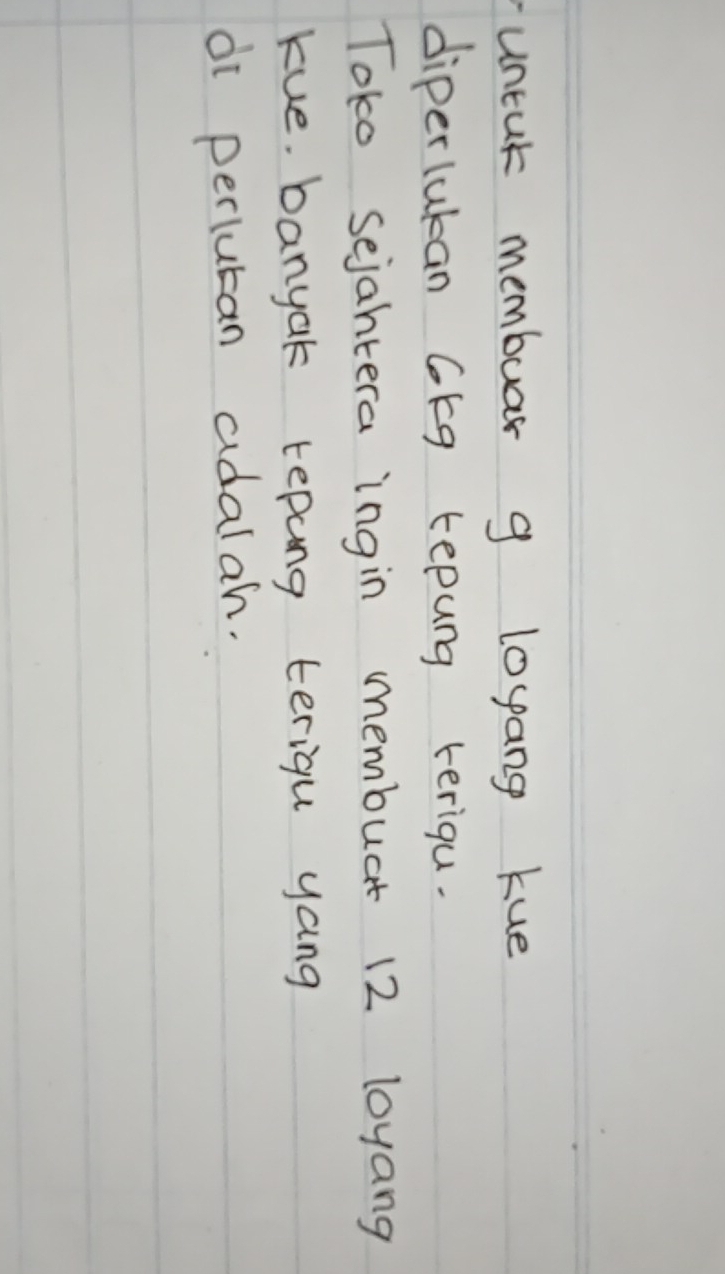 - untuk membuat 9 loyang kue
diperlukan 6kg tepung terigu.
Toko Sejahtera ingin membuat 12 loyang
kue. banyak tepung terigu yang
di perlukan adalah.